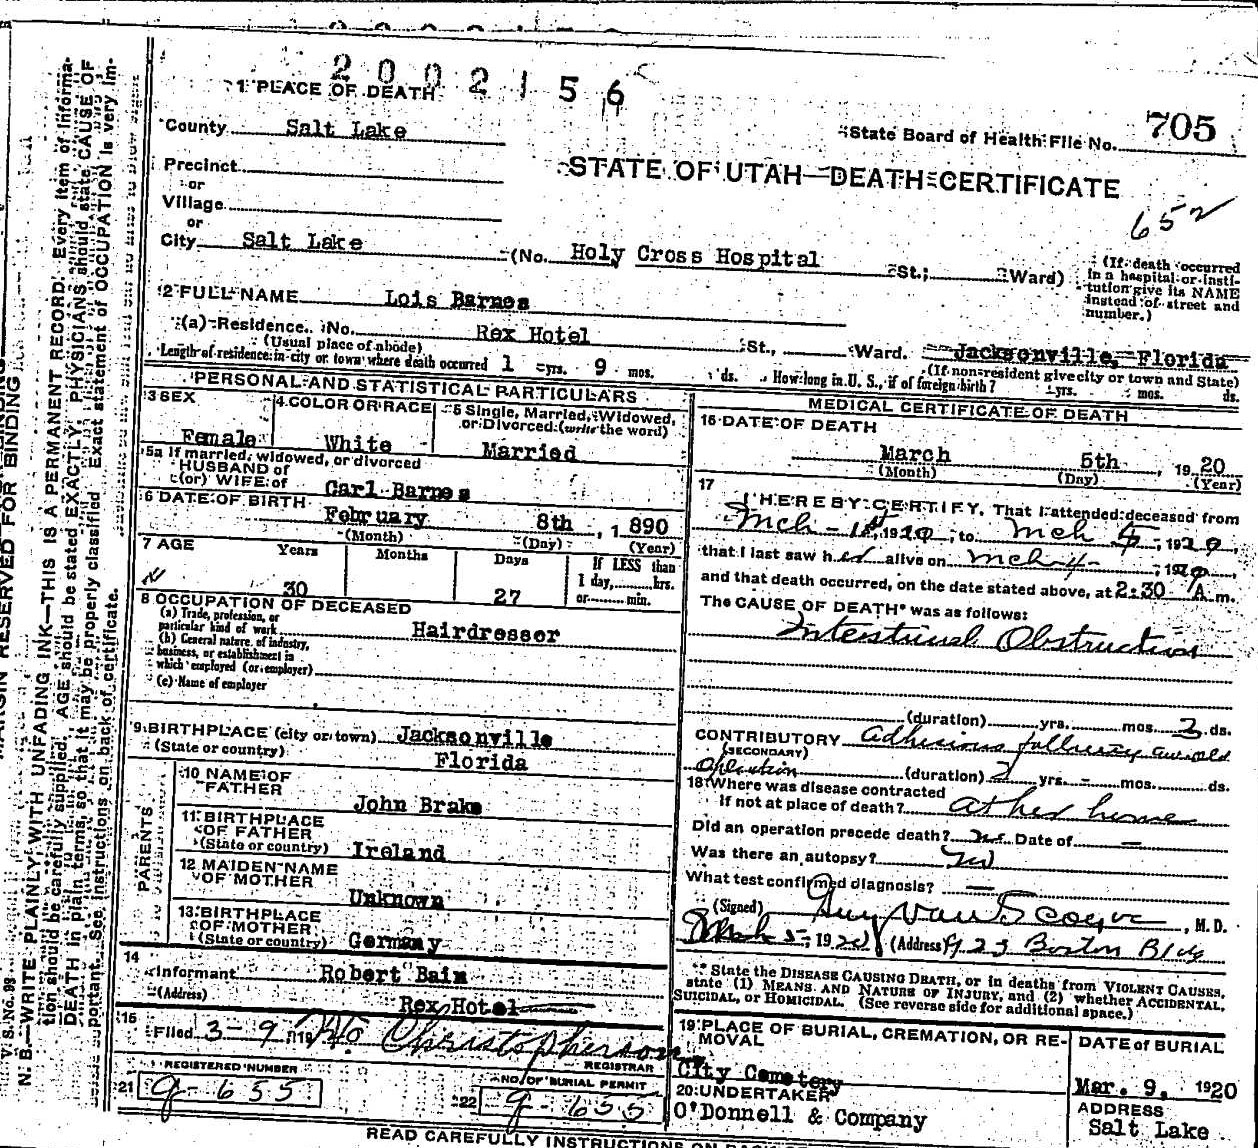 2002156
1 PLACE OF DEATH
County Salt Lake
State Board of Health File No. 705
Precinct
or
STATE OF UTAH—DEATH CERTIFICATE
Village
or
652
City Salt Lake (No. Holy Cross Hospital St.; Ward)
(If death occurred in a hospital or insti-
tution give its NAME
instead of street and
number.)
2 FULL NAME Lois Barnes
(a) Residence. No. Rex Hotel St., Ward. Jacksonville, Florida
(Usual place of abode) (If non-resident give city or town and State)
Length of residence in city or town where death occurred 1 yrs. 9 mos. ds. How long in U. S., if of foreign birth? yrs. mos. ds.
PERSONAL AND STATISTICAL PARTICULARS
3 SEX
Female
4 COLOR OR RACE
White
5 Single, Married, Widowed,
or Divorced (write the word)
Married
5a If married, widowed, or divorced
HUSBAND of
(or) WIFE of Carl Barnes
6 DATE OF BIRTH
February 8th, 1890
(Month) (Day) (Year)
7 AGE Years Months Days If LESS than
1 day, hrs.
or min.
30 27
8 OCCUPATION OF DECEASED
(a) Trade, profession, or
particular kind of work Hairdresser
(b) General nature of industry,
business, or establishment in
which employed (or employer)
(c) Name of employer
9 BIRTHPLACE (city or town) Jacksonville
(State or country) Florida
PARENTS
10 NAME OF
FATHER
John Brake
11 BIRTHPLACE
OF FATHER
(State or country) Ireland
12 MAIDEN NAME
OF MOTHER
Unknown
13 BIRTHPLACE
OF MOTHER
(State or country) Germany
14
Informant Robert Bain
(Address) Rex Hotel
15
Filed 3-9, 1920 Christopherson
REGISTRAR
REGISTERED NUMBER
21 g-655
NO. OF BURIAL PERMIT
22 g-655
MEDICAL CERTIFICATE OF DEATH
16 DATE OF DEATH
March 5th, 1920
(Month) (Day) (Year)
17
I HEREBY CERTIFY, That I attended deceased from
Mch - 1st, 1920, to Mch 5, 1920
that I last saw her alive on Mch 4 -, 1920,
and that death occurred, on the date stated above, at 2:30 A.m.
The CAUSE OF DEATH* was as follows:
Interstinal Obstruction
(duration) yrs. mos. 3 ds.
CONTRIBUTORY Adhesions following an old
(SECONDARY)
Operation (duration) 2 yrs. - mos. ds.
18 Where was disease contracted
if not at place of death? at her home
Did an operation precede death? no Date of —
Was there an autopsy? no
What test confirmed diagnosis? —
(Signed) Guy Van Scoyoc, M. D.
Mch 5, 1920 (Address) 925 Boston Bldg
* State the DISEASE CAUSING DEATH, or in deaths from VIOLENT CAUSES,
state (1) MEANS AND NATURE OF INJURY, and (2) whether ACCIDENTAL,
SUICIDAL, or HOMICIDAL. (See reverse side for additional space.)
19 PLACE OF BURIAL, CREMATION, OR RE-
MOVAL
City Cemetery
DATE of BURIAL
Mar. 9, 1920
20 UNDERTAKER
O'Donnell & Company
ADDRESS
Salt Lake
READ CAREFULLY INSTRUCTIONS ON BACK
MARGIN RESERVED FOR BINDING
V. S. No. 99
N. B.—WRITE PLAINLY WITH UNFADING INK—THIS IS A PERMANENT RECORD. Every item of informa-
tion should be carefully supplied. AGE should be stated EXACTLY. PHYSICIANS should state CAUSE OF
DEATH in plain terms, so that it may be properly classified. Exact statement of OCCUPATION is very im-
portant. See instructions on back of certificate.